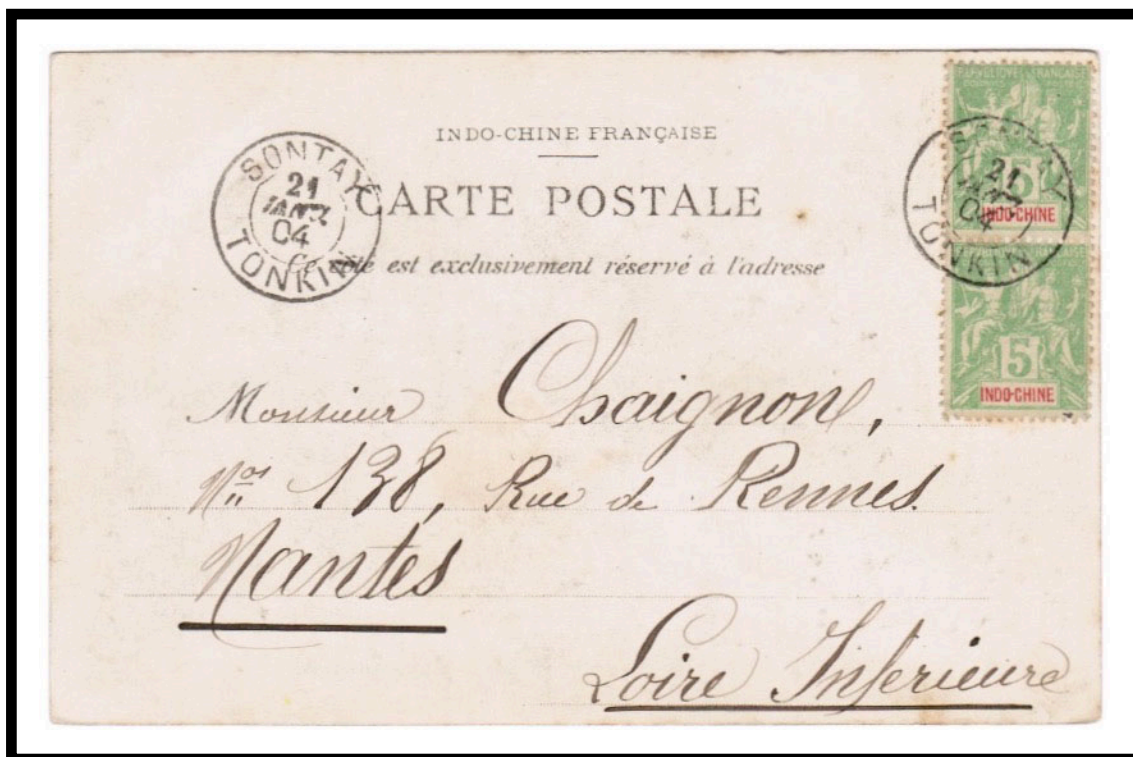 INDO-CHINE FRANÇAISE
CARTE POSTALE
Ce côté est exclusivement réservé à l'adresse
SONTAY
21
JANV.
04
TONKIN
RÉPUBLIQUE FRANÇAISE
5
INDO-CHINE
SONTAY
21
04
TONKIN
5
INDO-CHINE
Monsieur Chaignon,
Nos 138, Rue de Rennes.
Nantes
Loire Inferieure